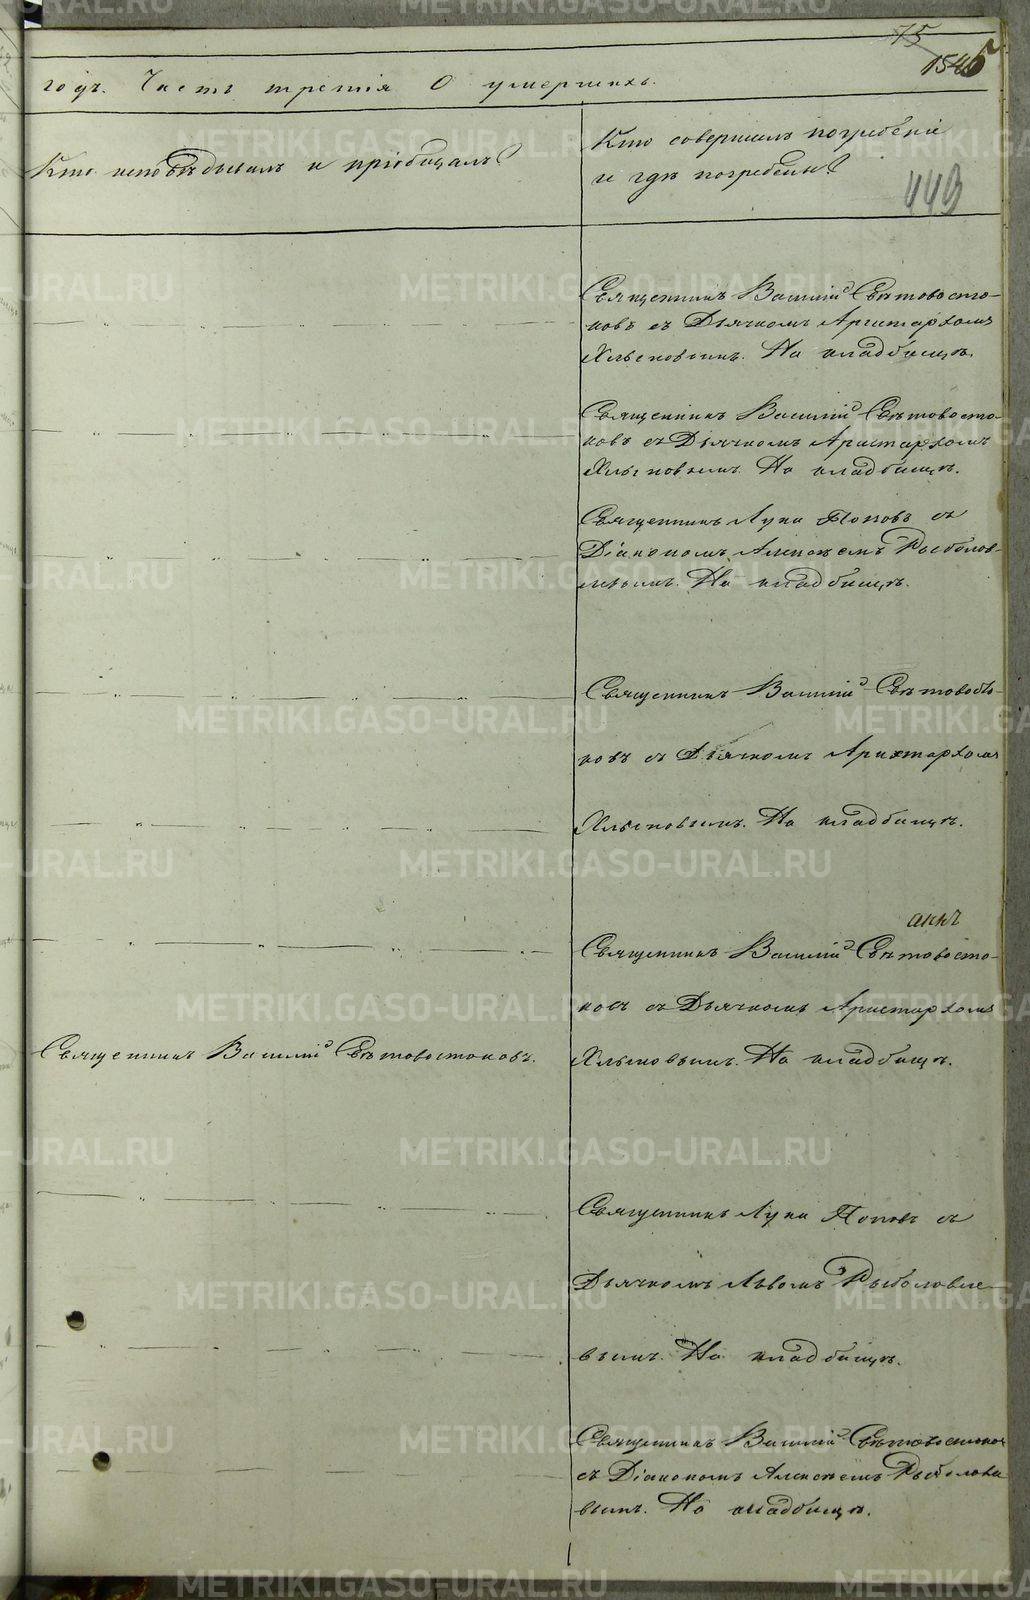 75
1845
годъ. Часть третія О умершихъ.
Кто исповѣдывалъ и пріобщалъ?
Кто совершалъ погребеніе
и гдѣ погребены?
449
Священникъ Василій Свѣтовосто-
ковъ съ Дьячкомъ Аристархомъ
Хлыновымъ. На кладбищѣ.
Священникъ Василій Свѣтовосто-
ковъ съ Дьячкомъ Аристархомъ
Хлыновымъ. На кладбищѣ.
Священникъ Лука Поповъ съ
Діакономъ Алексѣемъ Рыболов-
левымъ. На кладбищѣ.
Священникъ Василій Свѣтовосто-
ковъ съ Дьячкомъ Аристархомъ
Хлыновымъ. На кладбищѣ.
Священникъ Василій Свѣтовосто-
ковъ съ Дьячкомъ Аристархомъ
Священникъ Василій Свѣтовостоковъ.
Хлыновымъ. На кладбищѣ.
Священникъ Лука Поповъ съ
Дьячкомъ Львомъ Рыболовле-
вымъ. На кладбищѣ.
Священникъ Василій Свѣтовостоков
съ Діакономъ Алексѣемъ Рыболовле
вымъ. На кладбищѣ.
METRIKI.GASO-URAL.RU